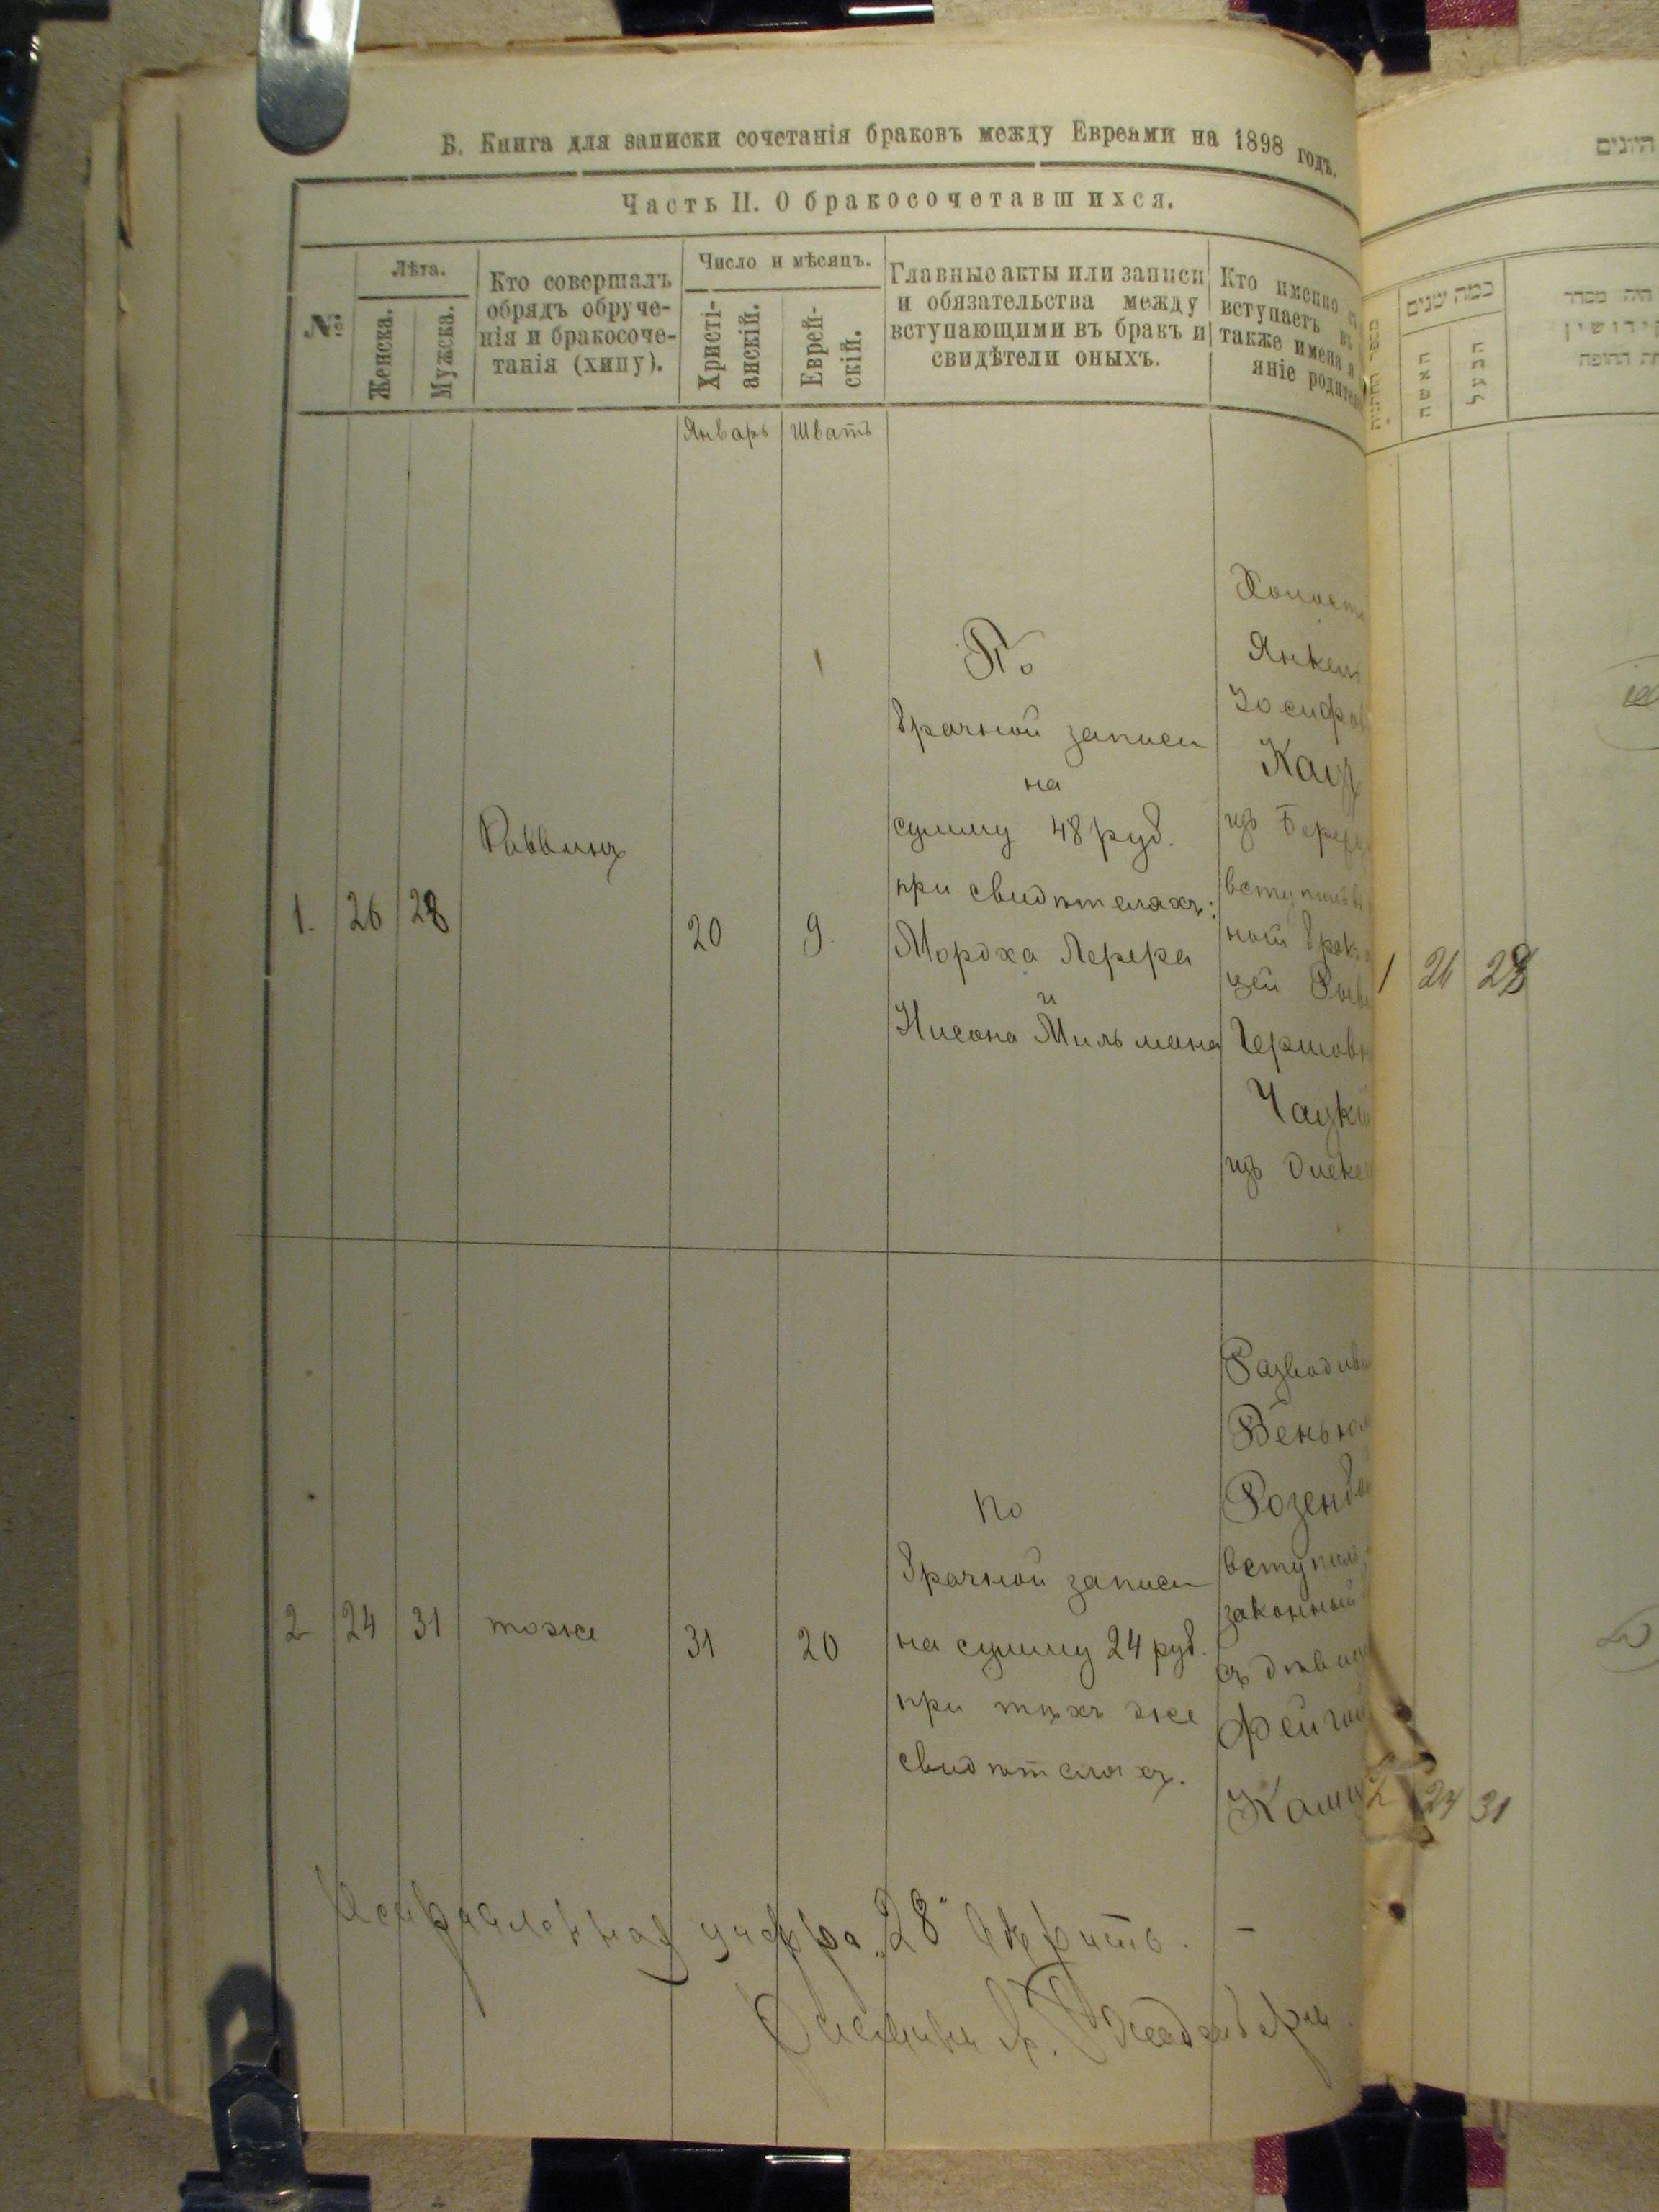 Б. Книга для записки сочетанія браковъ между Евреами на 1898 годъ.
Часть II. О бракосочетавшихся.
№
Лѣта.
Женска.
Мужска.
Кто совершалъ
обрядъ обруче-
нія и бракосоче-
танія (хипу).
Число и мѣсяцъ.
Христі-
анскій.
Еврей-
скій.
Главные акты или записи
и обязательства между
вступающими въ бракъ и
свидѣтели оныхъ.
Кто именно
вступаетъ въ
также имена и
яніе родител
Январь
Шватъ
1.
26
28
Раввинъ
20
9.
По
брачной записи
на
сумму 48 руб.
при свидѣтеляхъ:
Мордха Лерера
и
Нисона Мильмана
Холост
Янкель
Іосифов
Кац
изъ Берез
вступилъ въ
ной бракъ
цей
Гершовн
Чацки
изъ Олек
2
24
31
тоже
31
20
По
брачной записи
на сумму 24 руб.
при тѣхъ же
свидѣтеляхъ.
Разводив
Веньям
Розенба
вступилъ
законный
съ дѣвиц
Фейгой
Исправленная цифра „28" вѣрить. –
היונים
כמה שנים
האשה
הבעל
היה מסדר
קידושין
החופה
1
26
28
2
24
31